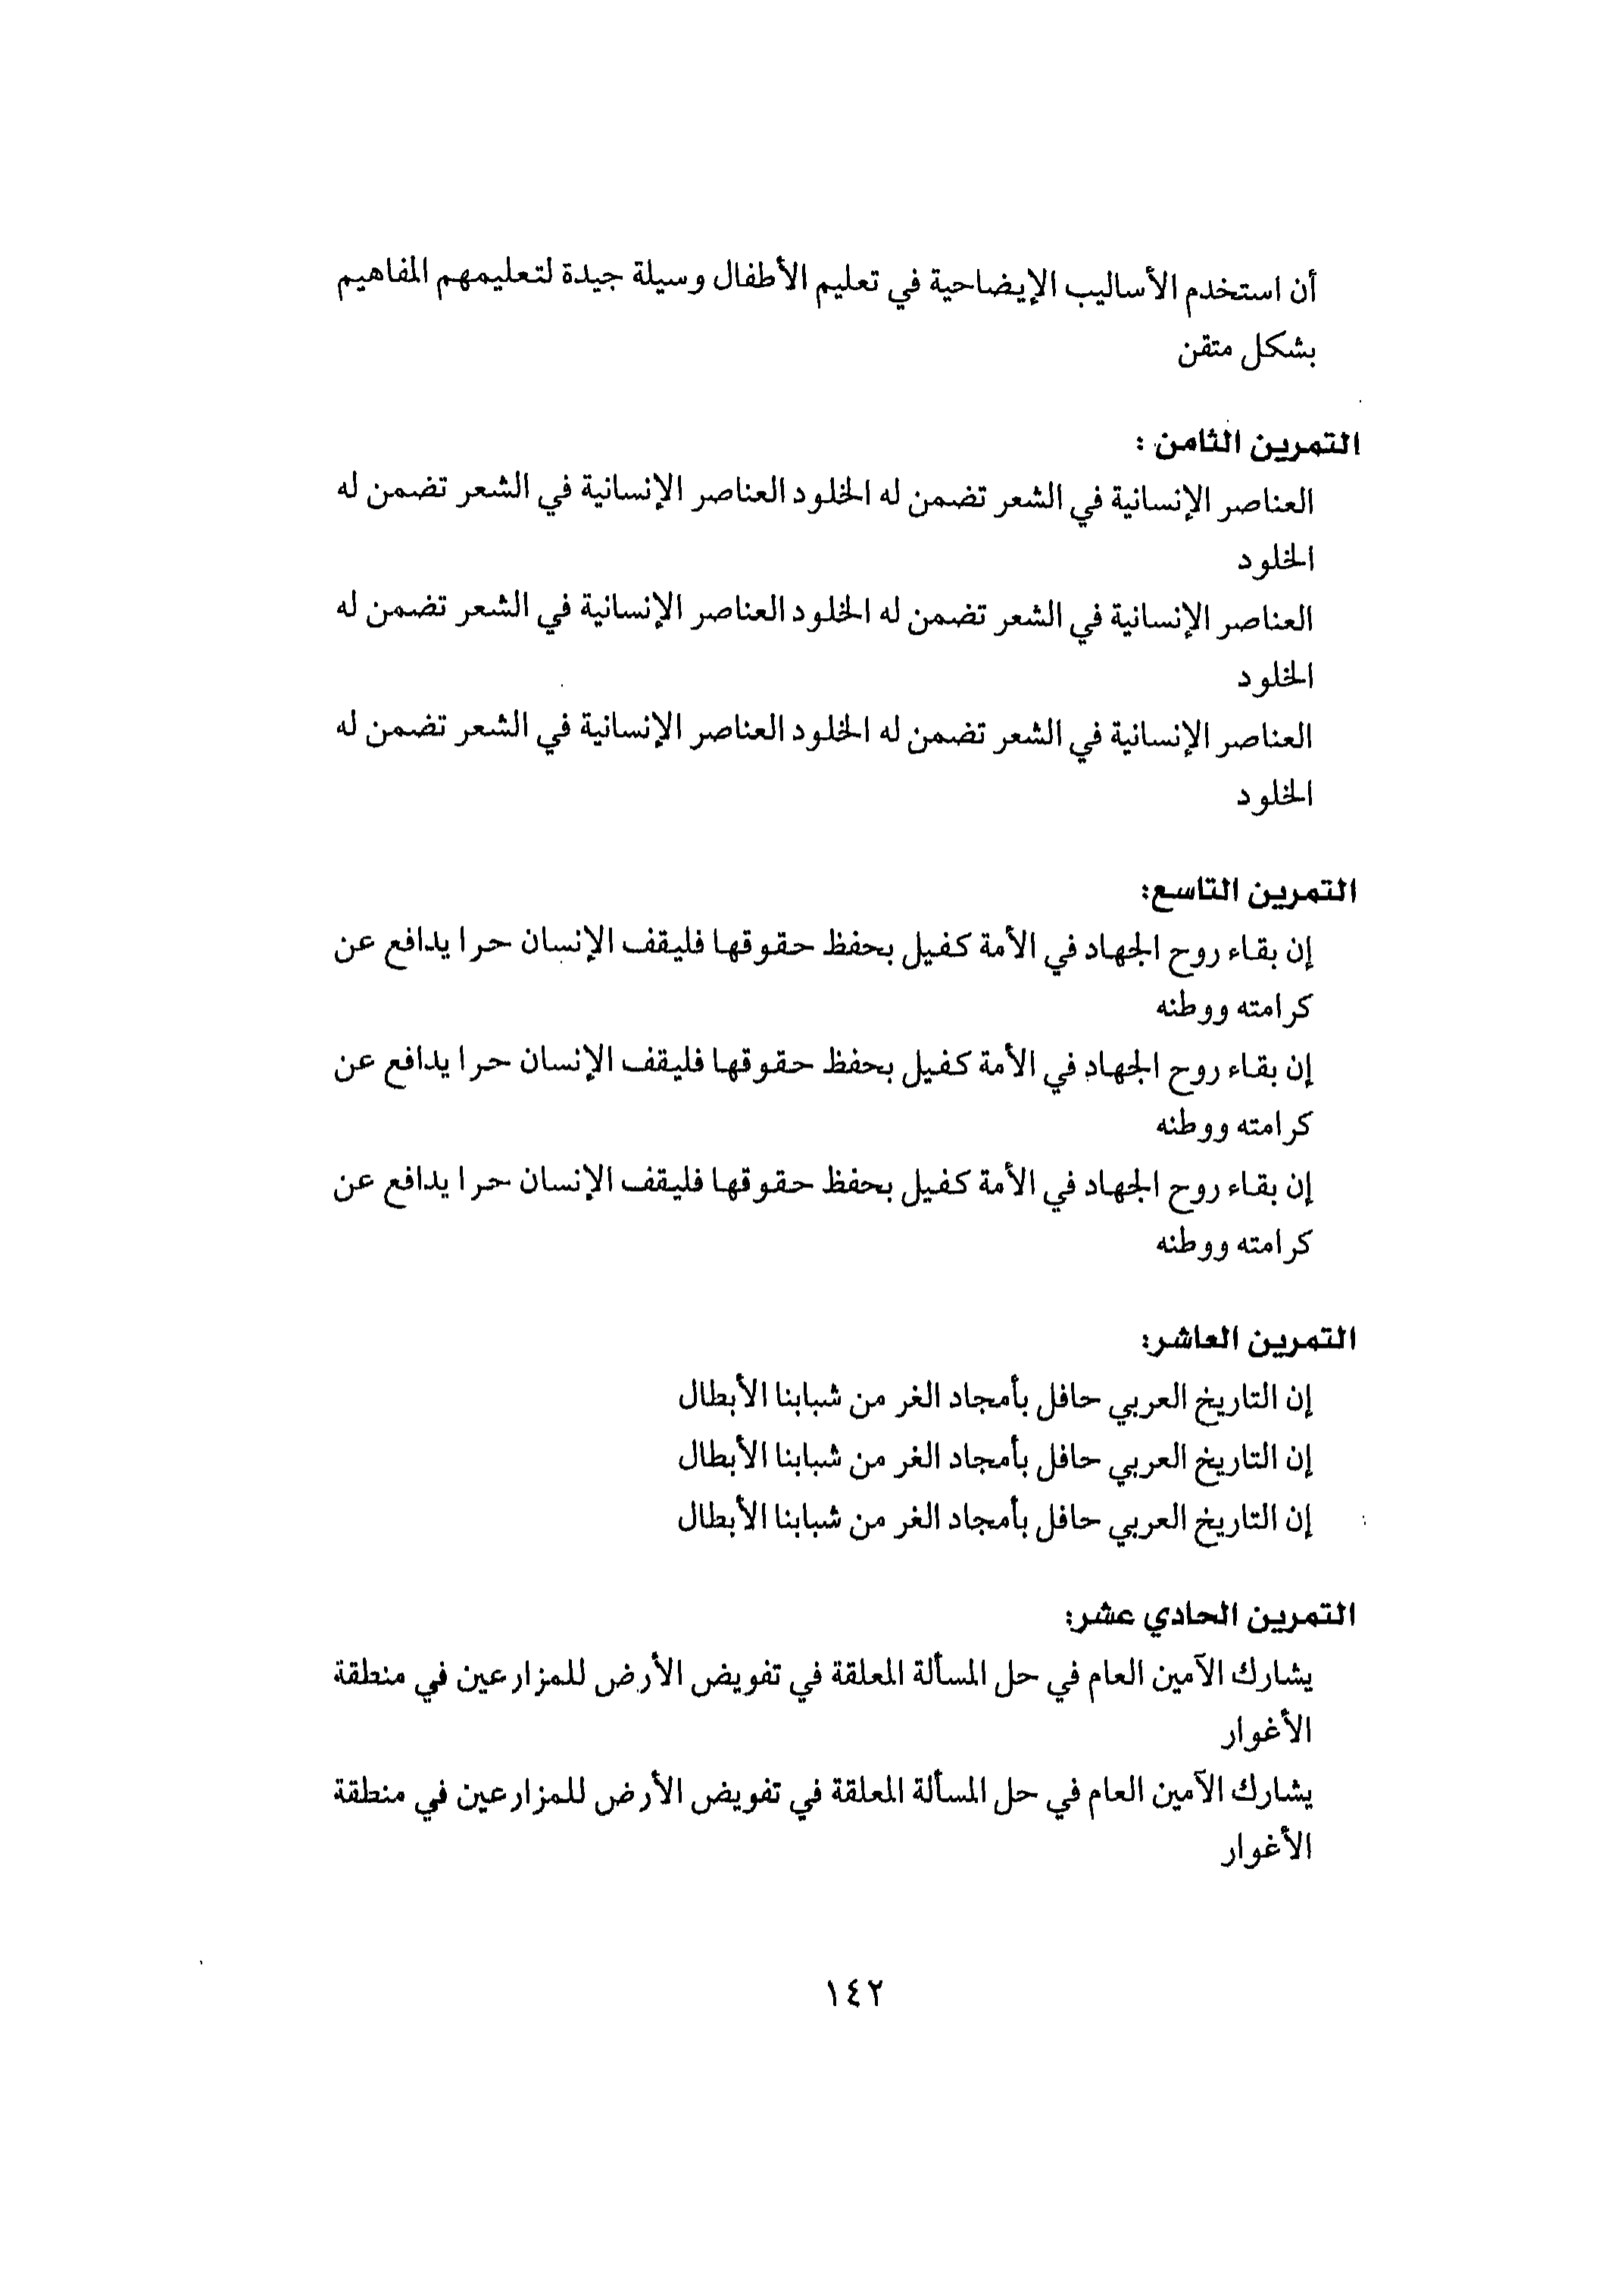 أن استخدم الأساليب الإيضاحية في تعليم الأطفال وسيلة جيدة لتعليمهم المفاهيم
بشكل متقن
التمرين الثامن :
العناصر الإنسانية في الشعر تضمن له الخلود العناصر الإنسانية في الشعر تضمن له
الخلود
العناصر الإنسانية في الشعر تضمن له الخلود العناصر الإنسانية في الشعر تضمن له
الخلود
العناصر الإنسانية في الشعر تضمن له الخلود العناصر الإنسانية في الشعر تضمن له
الخلود
التمرين التاسع:
إن بقاء روح الجهاد في الأمة كفيل بحفظ حقوقها فليقف الإنسان حرا يدافع عن
كرامته ووطنه
إن بقاء روح الجهاد في الأمة كفيل بحفظ حقوقها فليقف الإنسان حرا يدافع عن
كرامته ووطنه
إن بقاء روح الجهاد في الأمة كفيل بحفظ حقوقها فليقف الإنسان حرا يدافع عن
كرامته ووطنه
التمرين العاشر:
إن التاريخ العربي حافل بأمجاد الغر من شبابنا الأبطال
إن التاريخ العربي حافل بأمجاد الغر من شبابنا الأبطال
إن التاريخ العربي حافل بأمجاد الغر من شبابنا الأبطال
التمرين الحادي عشر:
يشارك الآمين العام في حل المسألة المعلقة في تفويض الأرض للمزارعين في منطقة
الأغوار
يشارك الآمين العام في حل المسألة المعلقة في تفويض الأرض للمزارعين في منطقة
الأغوار
١٤٢